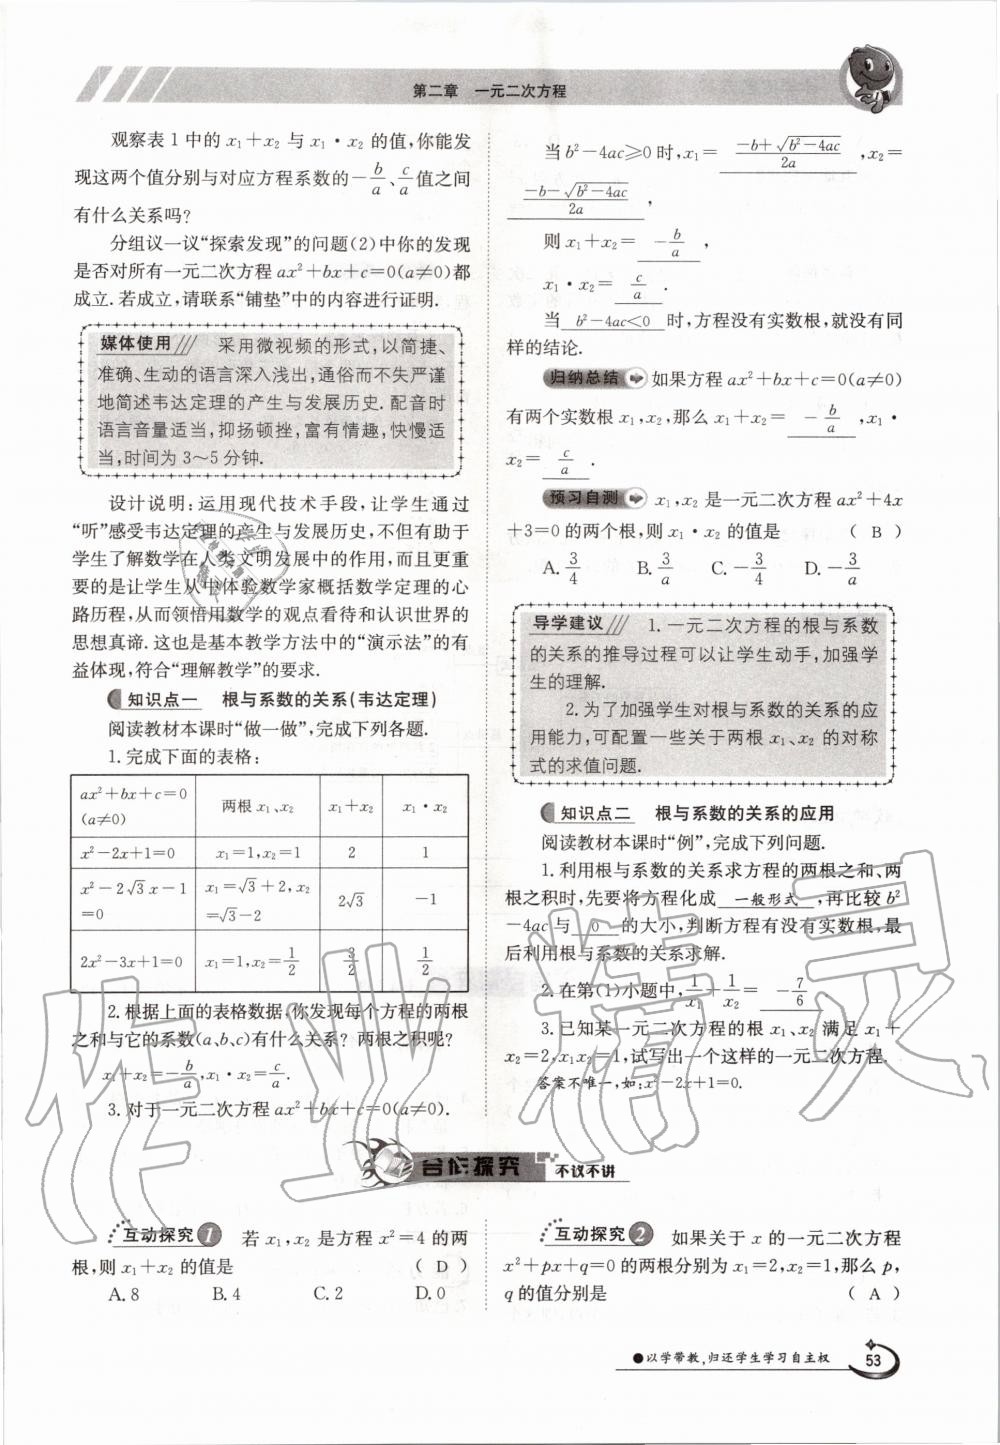 第二章　一元二次方程
观察表 1 中的 x₁+x₂ 与 x₁·x₂ 的值,你能发
现这两个值分别与对应方程系数的 -b/a、c/a 值之间
有什么关系吗?
分组议一议“探索发现”的问题(2)中你的发现
是否对所有一元二次方程 ax²+bx+c=0(a≠0)都
成立. 若成立,请联系“铺垫”中的内容进行证明.
媒体使用　采用微视频的形式,以简捷、
准确、生动的语言深入浅出,通俗而不失严谨
地简述韦达定理的产生与发展历史. 配音时
语言音量适当,抑扬顿挫,富有情趣,快慢适
当,时间为 3～5 分钟.
设计说明:运用现代技术手段,让学生通过
“听”感受韦达定理的产生与发展历史,不但有助于
学生了解数学在人类文明发展中的作用,而且更重
要的是让学生从中体验数学家概括数学定理的心
路历程,从而领悟用数学的观点看待和认识世界的
思想真谛. 这也是基本教学方法中的“演示法”的有
益体现,符合“理解教学”的要求.
知识点一　根与系数的关系(韦达定理)
阅读教材本课时“做一做”,完成下列各题.
1. 完成下面的表格:
ax²+bx+c=0 (a≠0)　两根 x₁、x₂　x₁+x₂　x₁·x₂
x²-2x+1=0　x₁=1,x₂=1　2　1
x²-2√3x-1=0　x₁=√3+2,x₂=√3-2　2√3　-1
2x²-3x+1=0　x₁=1,x₂=1/2　3/2　1/2
2. 根据上面的表格数据,你发现每个方程的两根
之和与它的系数(a、b、c)有什么关系? 两根之积呢?
x₁+x₂=-b/a,x₁·x₂=c/a.
3. 对于一元二次方程 ax²+bx+c=0(a≠0).
当 b²-4ac≥0 时,x₁= (-b+√(b²-4ac))/2a ,x₂=
(-b-√(b²-4ac))/2a ,
则 x₁+x₂= -b/a ,
x₁·x₂= c/a .
当 b²-4ac<0 时,方程没有实数根,就没有同
样的结论.
归纳总结　如果方程 ax²+bx+c=0(a≠0)
有两个实数根 x₁,x₂,那么 x₁+x₂= -b/a ,x₁·
x₂= c/a .
预习自测　x₁,x₂ 是一元二次方程 ax²+4x
+3=0 的两个根,则 x₁·x₂ 的值是　( B )
A. 3/4　B. 3/a　C. -3/4　D. -3/a
导学建议　1. 一元二次方程的根与系数
的关系的推导过程可以让学生动手,加强学
生的理解.
2. 为了加强学生对根与系数的关系的应
用能力,可配置一些关于两根 x₁、x₂ 的对称
式的求值问题.
知识点二　根与系数的关系的应用
阅读教材本课时“例”,完成下列问题.
1. 利用根与系数的关系求方程的两根之和、两
根之积时,先要将方程化成 一般形式 ,再比较 b²
-4ac 与 0 的大小,判断方程有没有实数根,最
后利用根与系数的关系求解.
2. 在第(1)小题中,1/x₁+1/x₂= -7/6
3. 已知某一元二次方程的根 x₁、x₂ 满足 x₁+
x₂=2,x₁x₂=1,试写出一个这样的一元二次方程.
答案不唯一,如:x²-2x+1=0.
合作探究　不议不讲
互动探究 1　若 x₁,x₂ 是方程 x²=4 的两
根,则 x₁+x₂ 的值是　( D )
A. 8　B. 4　C. 2　D. 0
互动探究 2　如果关于 x 的一元二次方程
x²+px+q=0 的两根分别为 x₁=2,x₂=1,那么 p,
q 的值分别是　( A )
●以学带教,归还学生学习自主权　53
作业精灵